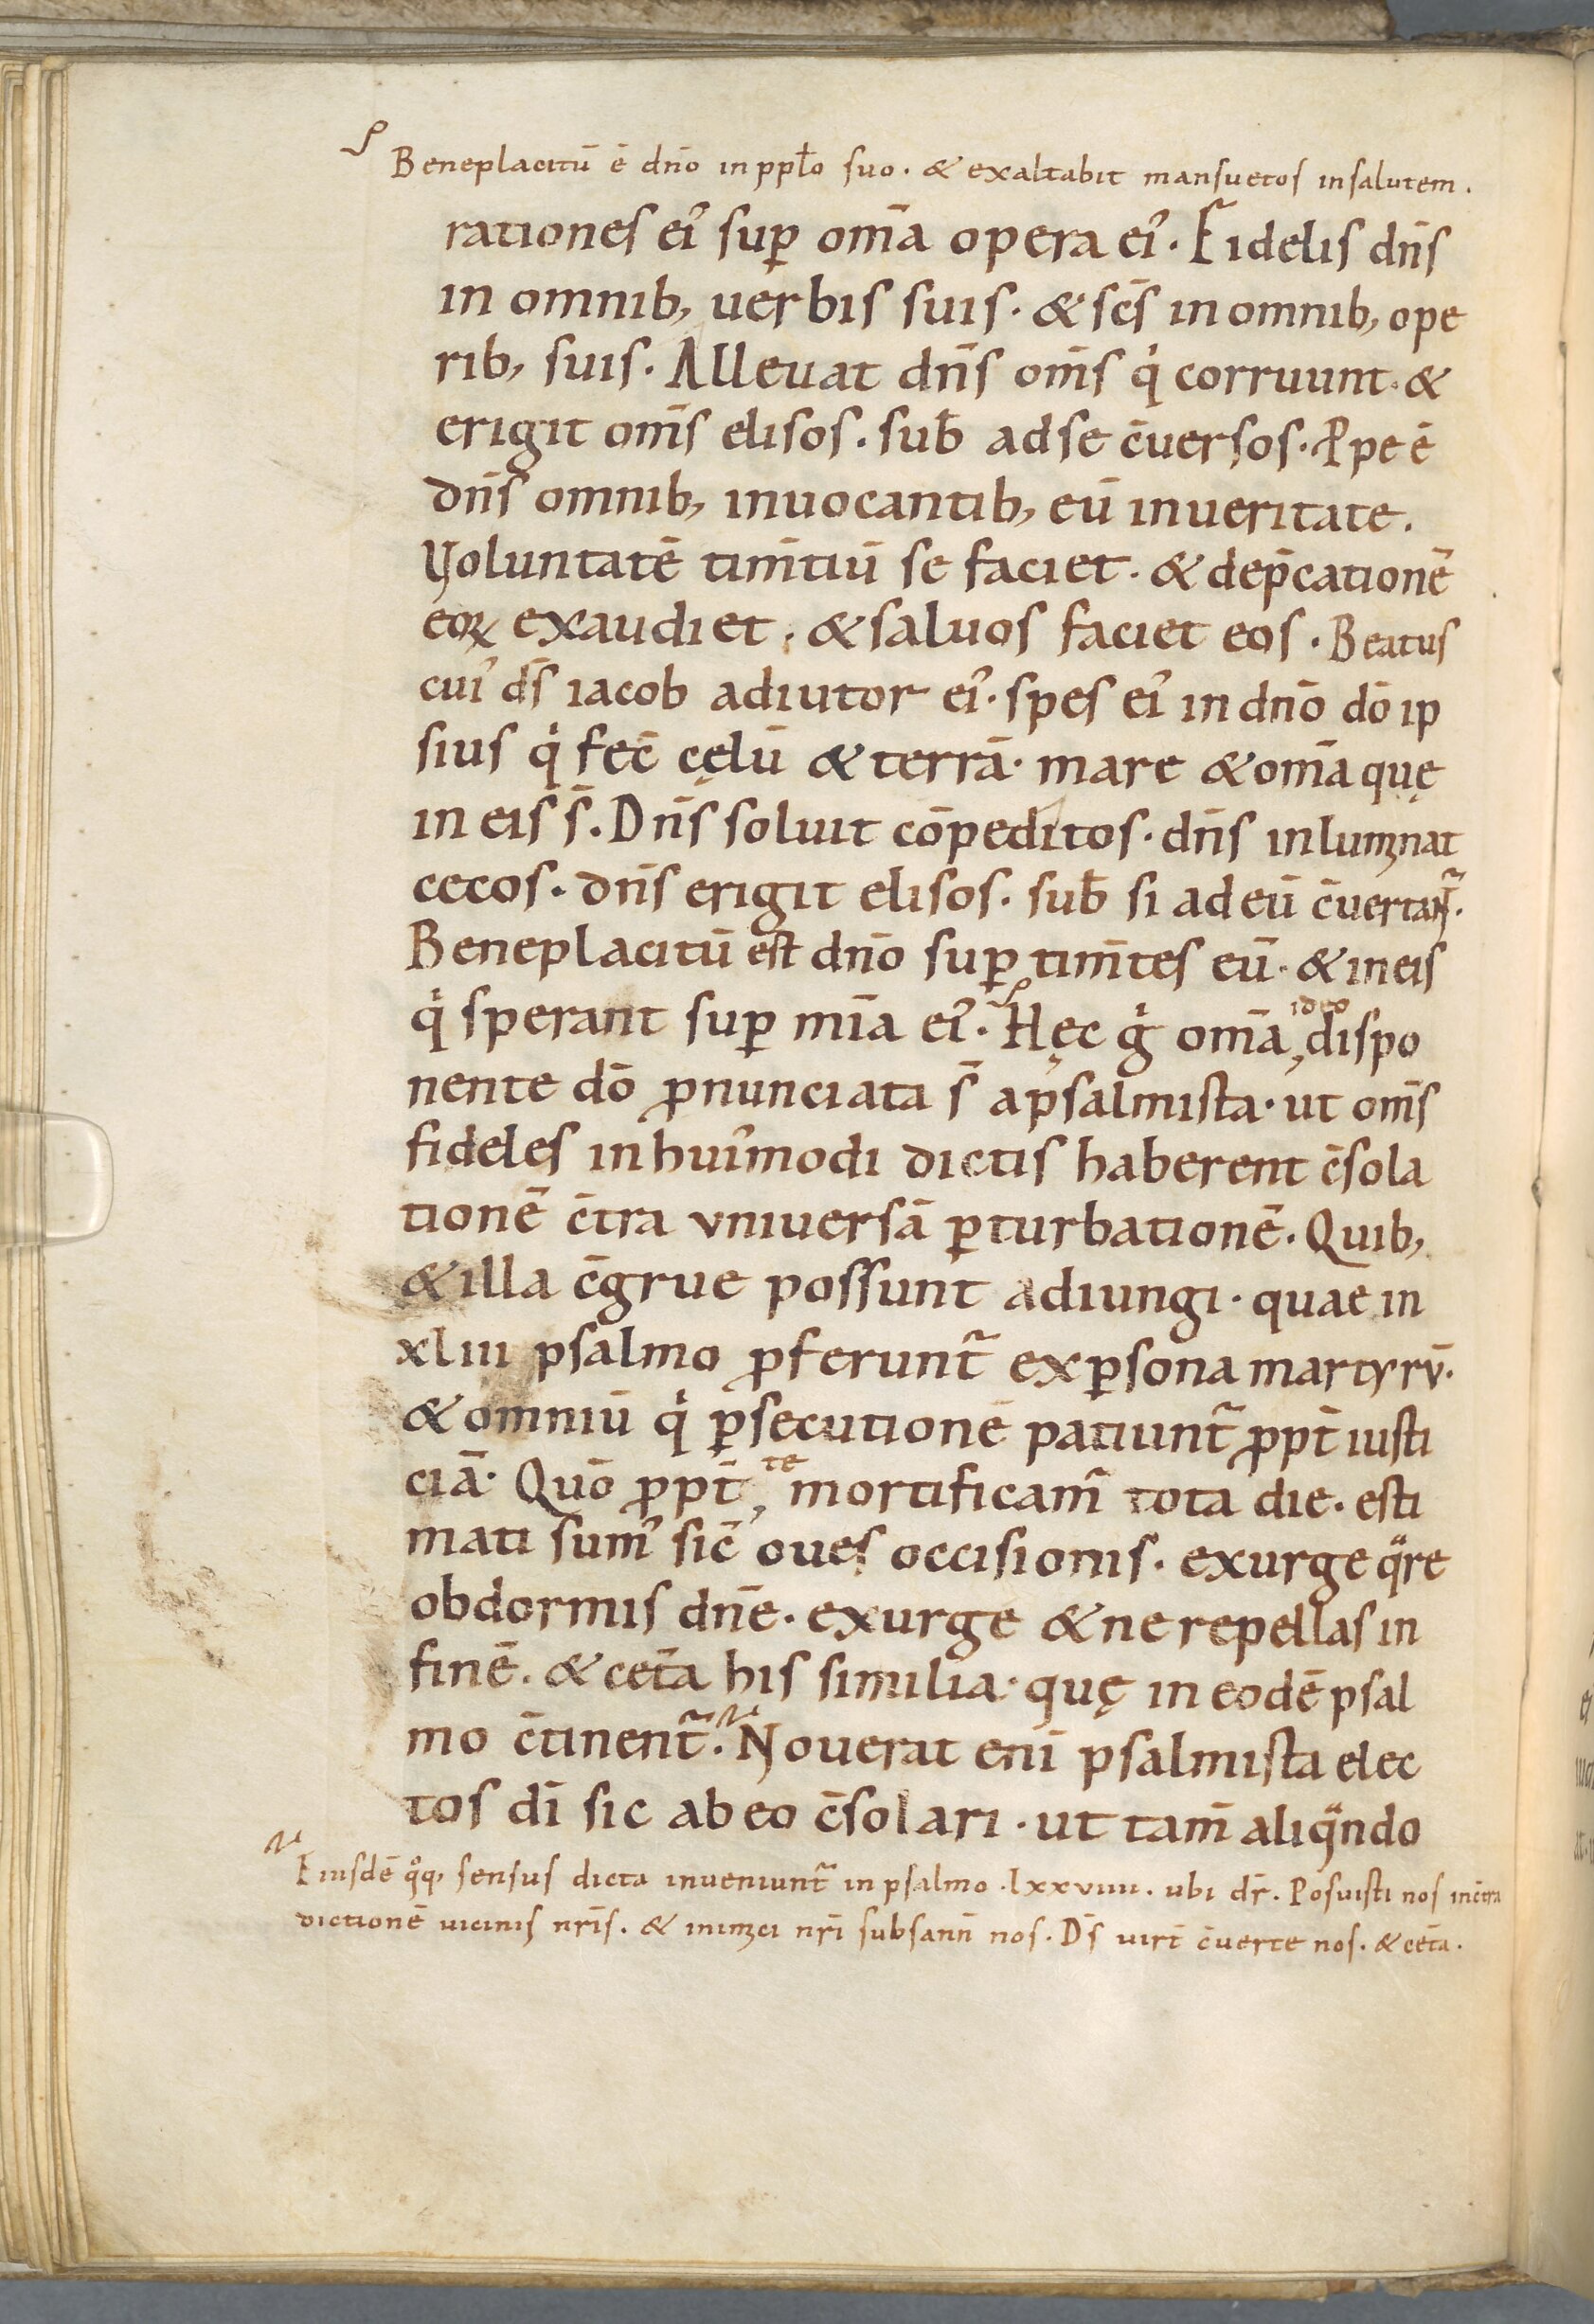 Beneplacitū ē dn̄o in ppl̄o suo. & exaltabit mansuetos in salutem.
rationes ei᾿ sup̲ om̄a opera ei᾿. Fidelis dn̄s
in omnib, uerbis suis. & sc̄s in omnib, ope
rib, suis. Alleuat dn̄s om̄s qͥ corruunt. &
erigit om̄s elisos. sub̄ ad se c̄uersos. Ppe ē
dn̄s omnib, inuocantib, eū in ueritate.
Voluntatē tim̄tiū se faciet. & dep̄cationē
eoꝝ exaudiet. & saluos faciet eos. Beatus
cui᾿ ds̄ iacob adiutor ei᾿. spes ei᾿ in dn̄o dō ip
sius qͥ fec̄ cęlū & terrā. mare & om̄a quę
in eis s̄. Dn̄s soluit cōpeditos. dn̄s inluminat
cecos. dn̄s erigit elisos. sub̄ si ad eū c̄uertant᷑.
Beneplacitū est dn̄o suꝑ tim̄tes eū. & in eis
qͥ sperant suꝑ mīa ei᾿. Hęc gͥ om̄a, ideo dispo
nente dō ꝓnunciata s̄ a psalmista. ut om̄s
fideles in hui᾿modi dictis haberent c̄sola
tionē c̄tra vniuersā ꝑturbationē. Quib,
& illa c̄grue possunt adiungi. quae in
xliii psalmo ꝓferunt᷑ ex ꝑsona martyrv̄.
& omniū qͥ ꝑsecutionē patiunt᷑ ꝓpt̄ iusti
ciā. Quō ꝓpt̄, te mortificam᷑ tota die. esti
mati sum᾿ sic̄ oues occisionis. exurge qͣre
obdormis dn̄e. exurge & ne repellas in
finē. & cet̄a his similia. quę in eodē psal
mo c̄tinent᷑. Nouerat enī psalmista elec
tos dī sic ab eo c̄solari. ut tam̄ aliqͣndo
Eiusdē qͦq, sensus dicta inueniunt᷑ in psalmo .lxxviiii. ubi dr̄. Posuisti nos in c̄tra
dictionē uicinis nr̄is. & inimici nr̄i subsann̄ nos. Ds̄ uirt̄ c̄uerte nos. & cet̄a.